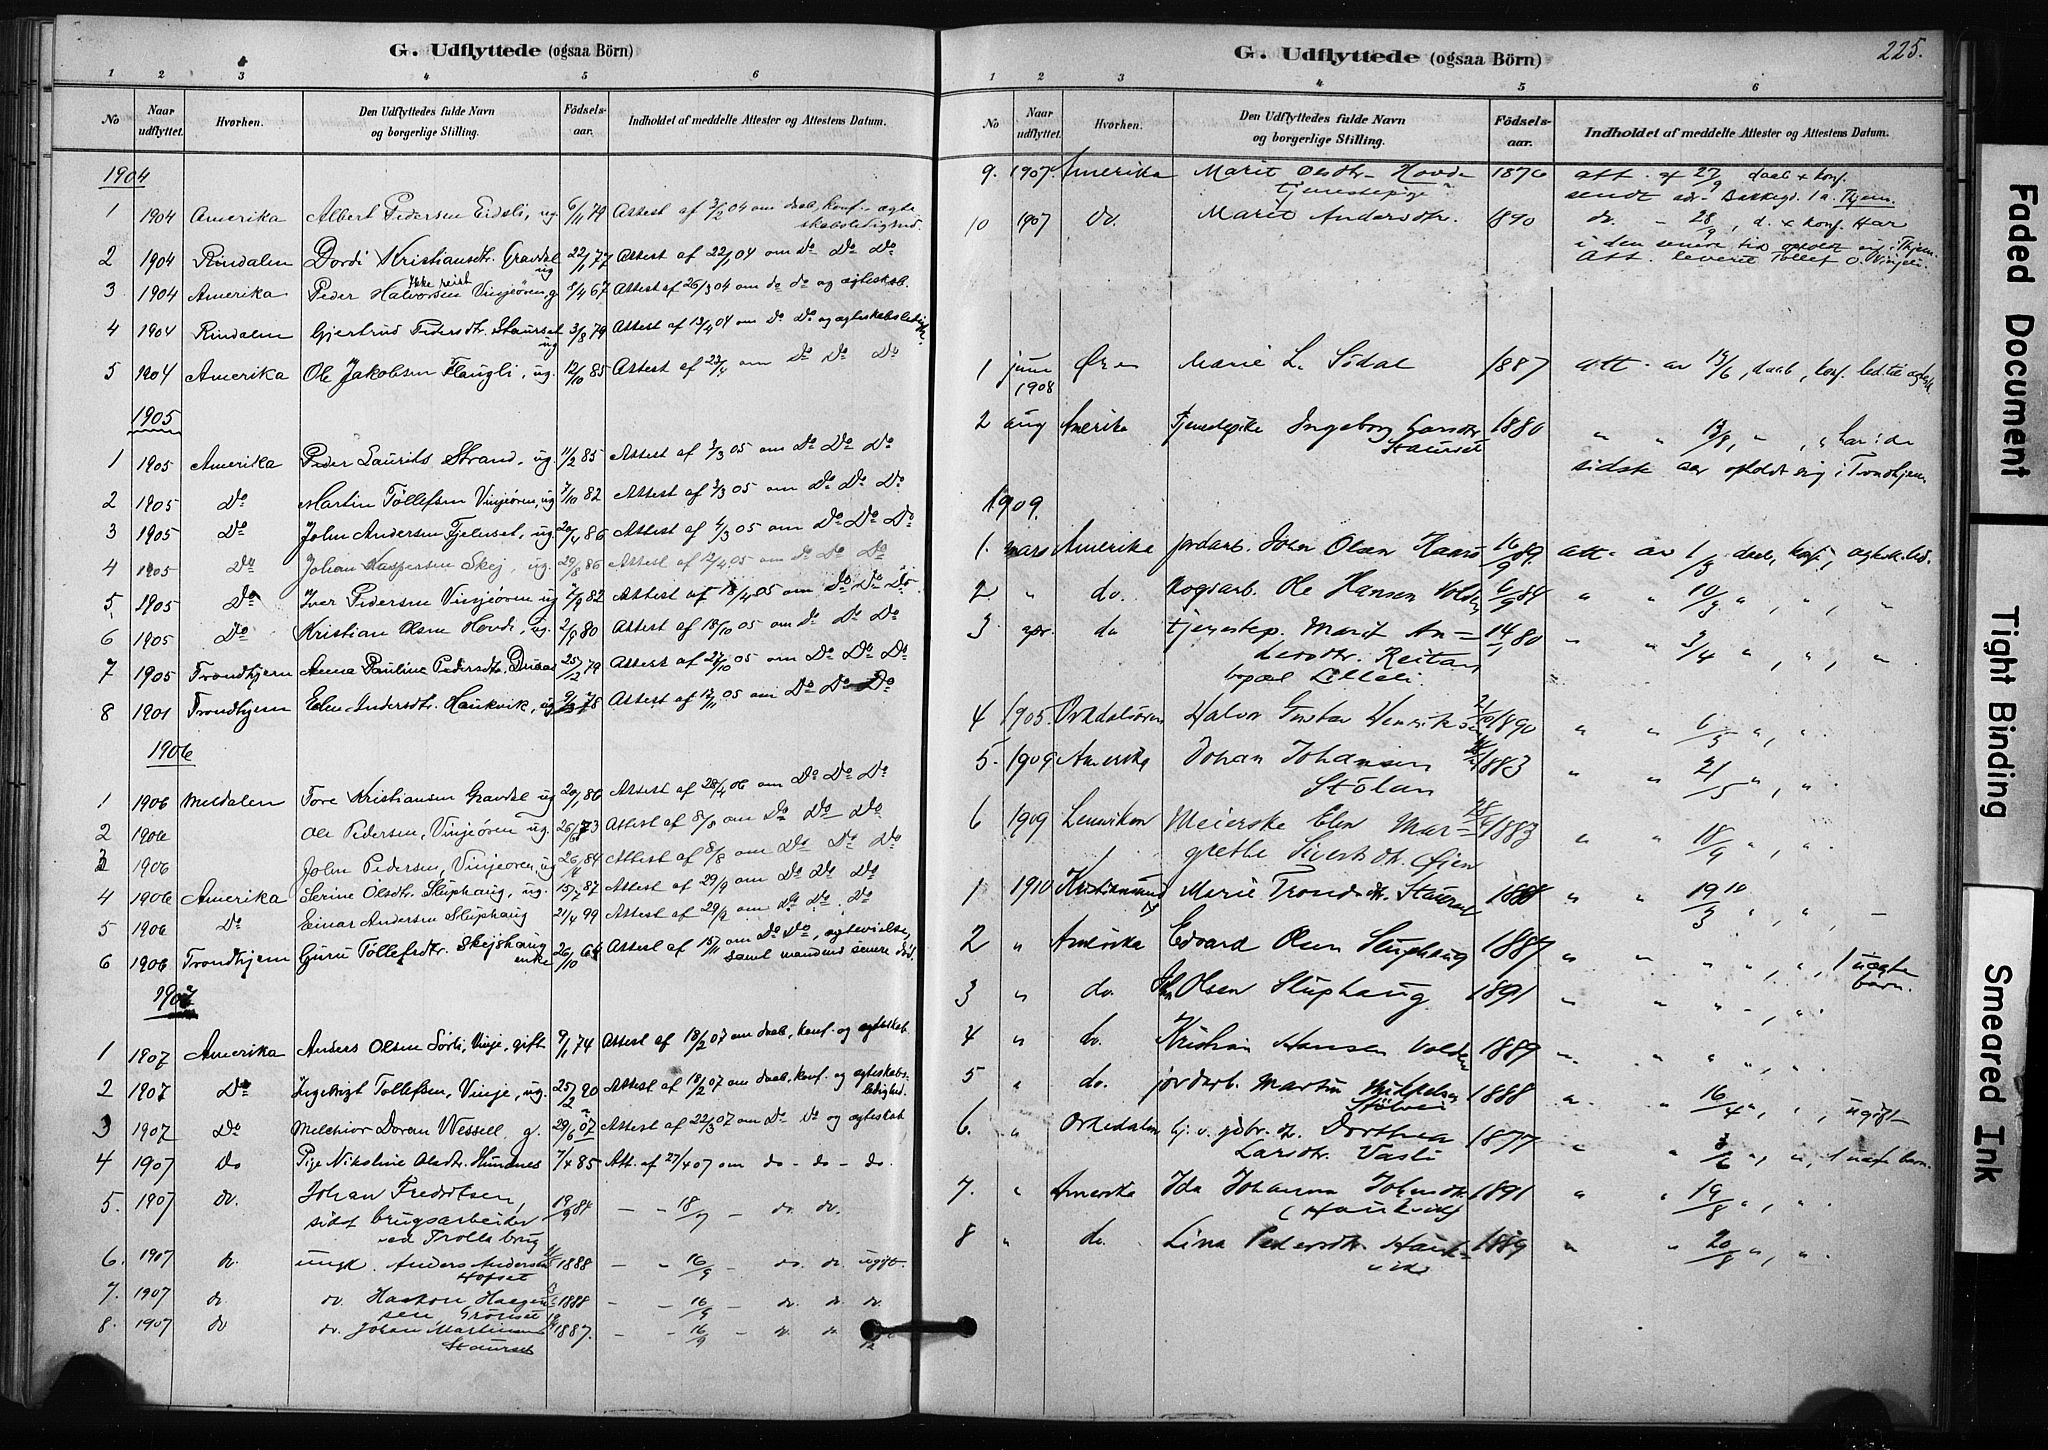 G. Udflyttede (ogsaa Börn)
1 2 3 4 5 6
No Naar udflyttet. Hvorhen. Den Udflyttedes fulde Navn og borgerlige Stilling. Födsels-aar. Indholdet af meddelte Attester og Attestens Datum.
1904
1 1904 Amerika Albert Pedersen Erdsli, ug 6/11 79 Attest af 3/2 04 om daab, konf. ægte
skabsledighed.
2 1904 Rindalen Dordi Kristiansdtr. Gravdal 22/1 77 Attest af 22/1 04 om do Do Do
ug
ikke reist
3 1904 Amerika Peder Halvorsen Vinjeören, g 8/4 67 Attest af 26/3 04 om do do og ægteskab.
4 1904 Rindalen Gjertrud Pedersdtr. Staurset 3/8 79 Attest af 13/4 04 om Do Do og ægteskabsledigh.
ug
5 1904 Amerika Ole Jakobsen Flaugli, ug. 12/10 85 Attest af 23/4 om Do Do Do
1905
1 1905 Amerika Peder Laurits Strand, ug. 11/2 85 Attest af 3/3 05 om Do Do Do
2 1905 Do Martin Tollefsen Vinjeören, ug 7/10 82 Attest af 3/3 05 om Do Do Do
3 1905 Do John Andersen Fjelnset, ug. 20/1 86 Attest af 4/3 05 om Do Do Do
4 1905 Do Johan Kaspersen Skej, ug. 29/8 86 Attest af 12/4 05 om Do Do Do
5 1905 Do Iver Pedersen Vinjeören ug 7/9 82 Attest af 18/4 05 om Do Do Do
6 1905 Do Kristian Olsen Hovde, ug. 2/9 80 Attest af 18/10 05 om do Do Do
7 1905 Trondhjem Anna Pauline Pedersdtr. Druaas 25/12 79 Attest af 27/10 05 om Do Do Do
8 1901 Trondhjem Elen Andersdtr. Haukvik, ug 9/3 78 Attest af 17/11 05 om Do Do Do
1906
1 1906 Meldalen Tore Kristiansen Gravdal ug 20/1 86 Attest af 28/4 06 om Do Do Do
2 1906 Ole Pedersen, Vinjeören ug. 26/6 73 Attest af 8/8 om Do Do Do
3 1906 John Pedersen, Vinjeören, ug 26/4 84 Attest af 8/8 om Do Do Do
4 1906 Amerika Serine Olsdtr. Sluphaug, ug. 15/7 87 Attest af 29/9 om Do Do Do
5 1906 Do Einar Andersen Sluphaug 21/4 99 Attest af 29/9 om Do Do Do
6 1906 Trondhjem Guru Tollefsdtr. Skejshaug 26/10 64 Attest af 15/11 om Do Do, ægtevielse,
enke samt mandens senere död.
1907
1 1907 Amerika Anders Olsen Sörli, Vinje, gift 9/1 74 Attest af 18/2 07 om daab, konf. og ægteskab.
2 1907 Do Ingebrigt Tollefsen, Vinje, ug. 25/2 90 Attest af 18/2 07 om daab, konf. og ægteskabs-
ledighed.
3 1907 Do Melchior Doran Wessell, g. 29/6 07 Attest af 22/3 07 om Do Do og ægteskab
4 1907 Do Pige Nikoline Olsdtr. Hundnes 7/4 85 Att. af 27/4 07 om do - do - do.
5. 1907 do. Johan Fredrtsen, 19/9 84 — " 18/7 - do. do.
sidst brugsarbeider
ved Trolla brug
6. 1907 do. ungk. Anders Andersen 1888 — " 16/9 — do. do. ugift.
Hofset
7. 1907 do do. Haakon Haagen- 1888 — " 16/9 — do. do. do.
sen Grönset
8. 1907 do do. Johan Martinsen 1887. — " 16/9 — do. do
Staurset
G. Udflyttede (ogsaa Börn) 225.
1 2 3 4 5 6
No Naar udflyttet. Hvorhen. Den Udflyttedes fulde Navn og borgerlige Stilling. Födsels-aar. Indholdet af meddelte Attester og Attestens Datum.
9. 1907. Amerika Marit Olsdtr. Hovde 1876 att. af 27/9 daab & konf.
tjenestepige sendt adr. Bakkegd. 1a. Thjem.
10 1907 do. Marit Andersdtr. 1890 do. - 28/9, d. & konf. Har
i den senere tid opholdt sig i Thjem.
Att. leveret Tollef O. Vinjeör.
1 juni Øre Marie L. Södal 1887 att. av 13/6, daab, konf. led. til ægtesk.
1908
2 aug Amerika Tjenestepike Ingeborg Larsdtr. 1880 " " 13/8, " , " har i de
Staurset sidste aar opholdt sig i Trondhjem
1909.
1. mars Amerika jordarb. John Olsen Hans 16/9 89. att. av 1/3 daab, konf., ægtesk. led.
2 " do. skogsarb. Ole Hansen Volden 6/9 84 " " 10/3 " , " , "
3 apr. do tjenestep. Marit An- 14/1 80 " " 3/4 " , " , "
dersdtr. Reitan
bopæl Lilleli.
4 1905. Orkdalsören Halvor Gustav Henriksen 1890 " " 6/5 " , " .
5. 1909 Amerika Johan Johansen 1883 " " 21/5 " , " .
Stölan
6 1909 Lensviken Meierske Elen Mar- 1883 " " 18/9 " , " .
grethe Sivertsdtr. Øien
1 1910 Kristiansund Marie Trondsdtr. Staurset 1888 " " 19/3 10 " , " , —
2 " Amerika Edvard Olsen Sluphaug 1887 " " " " , " , 1 uægte
barn.
3 " do. Olsen Sluphaug 1891 " " " - , " .
4 " do. Kristian Hansen Volden 1889 " " " " , " .
5 " do. jordarb. Martin Mikkelsen 1888 " " 16/4 " , " , ugift
Stölen
6. " Orkedalen Dorthea 1877 " " 3/6 " , " , 1 uægte barn.
Larsdtr. Vasli
7. " Amerika Ida Johanna Johnsdtr. 1891 " " 19/8 " , " .
(Haukvik)
8 " do. Lina Pedersdtr. Hauk- 1889 " " 20/8 " , " .
vik
Faded Document
Tight Binding
Smeared Ink